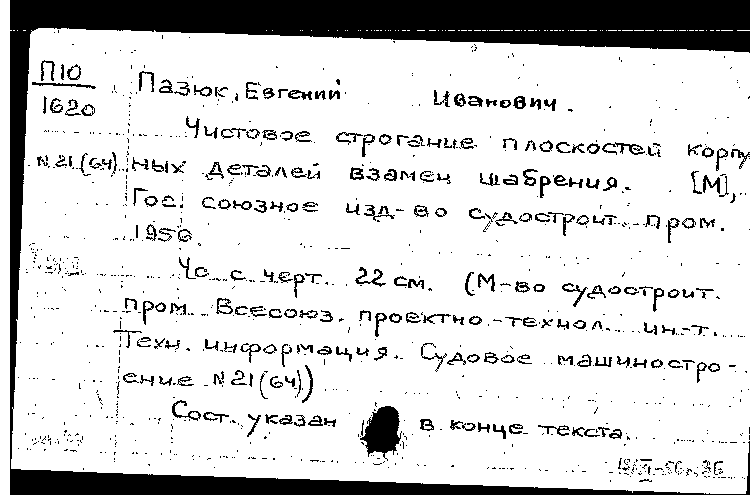 П10
1620
N21(64)
Пазюк, Евгений Иванович.
Чистовое строгание плоскостей корпу
ных деталей взамен шабрения. [М],
Гос. союзное изд-во судостроит. пром.
1956.
с черт. 22 см. (М-во судостроит.
пром. Всесоюз. проектно-технол. ин-т.
Техн. информация. Судовое машиностро-
ение N21(64))
Сост. указан в конце текста.